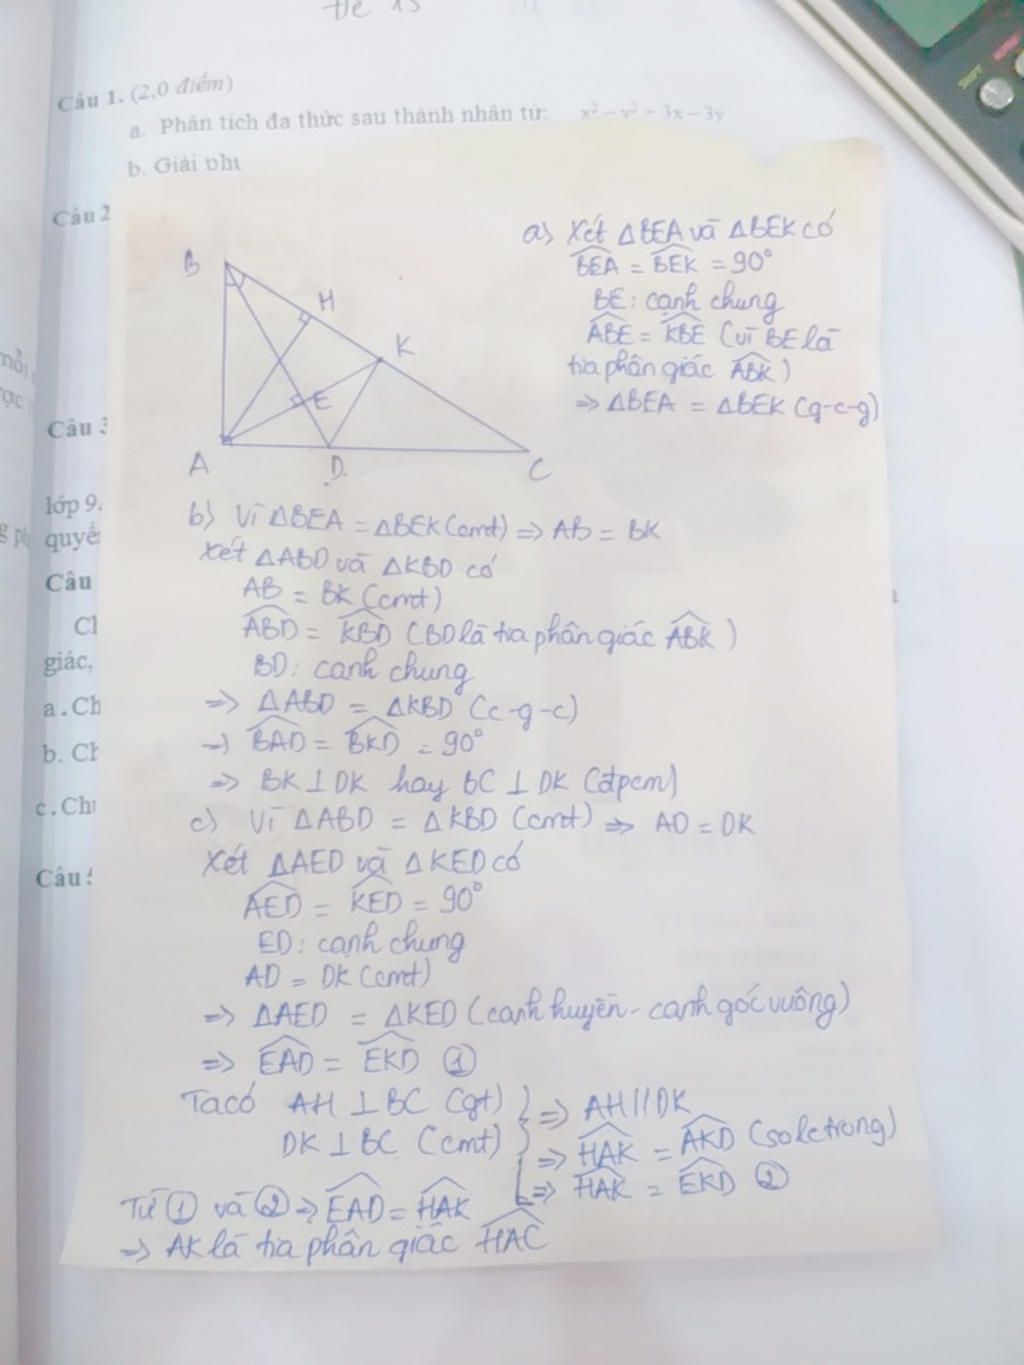 Đề 13
Câu 1. (2,0 điểm)
a. Phân tích đa thức sau thành nhân tử: x² − y² + 3x − 3y
b. Giải
Câu 2
Câu 3
lớp 9.
quyể
Câu
giác,
a. Ch
b. Ch
c. Ch
Câu
B
H
K
E
A
D
C
a) Xét ΔBEA và ΔBEK có
\widehat{BEA} = \widehat{BEK} = 90°
BE: cạnh chung
\widehat{ABE} = \widehat{KBE} (vì BE là
tia phân giác \widehat{ABK})
=> ΔBEA = ΔBEK (g-c-g)
b) Vì ΔBEA = ΔBEK (cmt) => AB = BK
Xét ΔABD và ΔKBD có
AB = BK (cmt)
\widehat{ABD} = \widehat{KBD} (BD là tia phân giác \widehat{ABK})
BD: cạnh chung
=> ΔABD = ΔKBD (c-g-c)
=> \widehat{BAD} = \widehat{BKD} = 90°
=> BK ⊥ DK hay BC ⊥ DK (đpcm)
c) Vì ΔABD = ΔKBD (cmt) => AD = DK
Xét ΔAED và ΔKED có
\widehat{AED} = \widehat{KED} = 90°
ED: cạnh chung
AD = DK (cmt)
=> ΔAED = ΔKED (cạnh huyền - cạnh góc vuông)
=> \widehat{EAD} = \widehat{EKD} ①
Ta có AH ⊥ BC (gt) } => AH // DK
DK ⊥ BC (cmt) => \widehat{HAK} = \widehat{AKD} (so le trong)
=> \widehat{HAK} = \widehat{EKD} ②
Từ ① và ② => \widehat{EAD} = \widehat{HAK}
=> AK là tia phân giác \widehat{HAC}